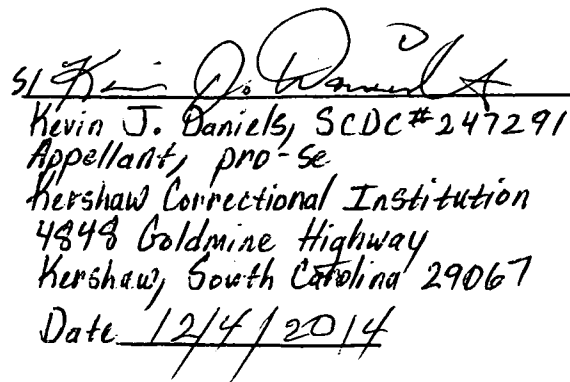 s/ Kevin J. Daniels
Kevin J. Daniels, SCDC# 247291
Appellant, pro-se
Kershaw Correctional Institution
4848 Goldmine Highway
Kershaw, South Carolina 29067
Date 12/4/2014